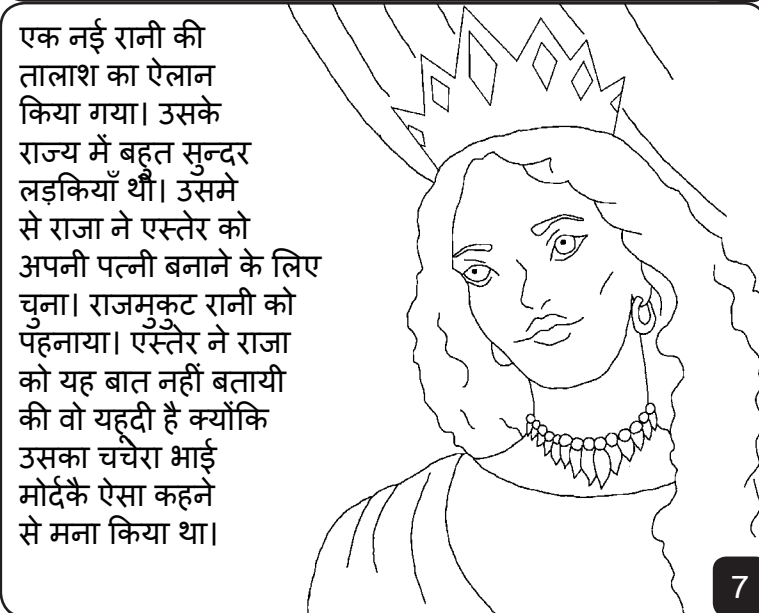 एक नई रानी की
तालाश का ऐलान
किया गया। उसके
राज्य में बहुत सुन्दर
लड़कियाँ थी। उसमे
से राजा ने एस्तेर को
अपनी पत्नी बनाने के लिए
चुना। राजमुकुट रानी को
पहनाया। एस्तेर ने राजा
को यह बात नहीं बतायी
की वो यहूदी है क्योंकि
उसका चचेरा भाई
मोर्दकै ऐसा कहने
से मना किया था।
7